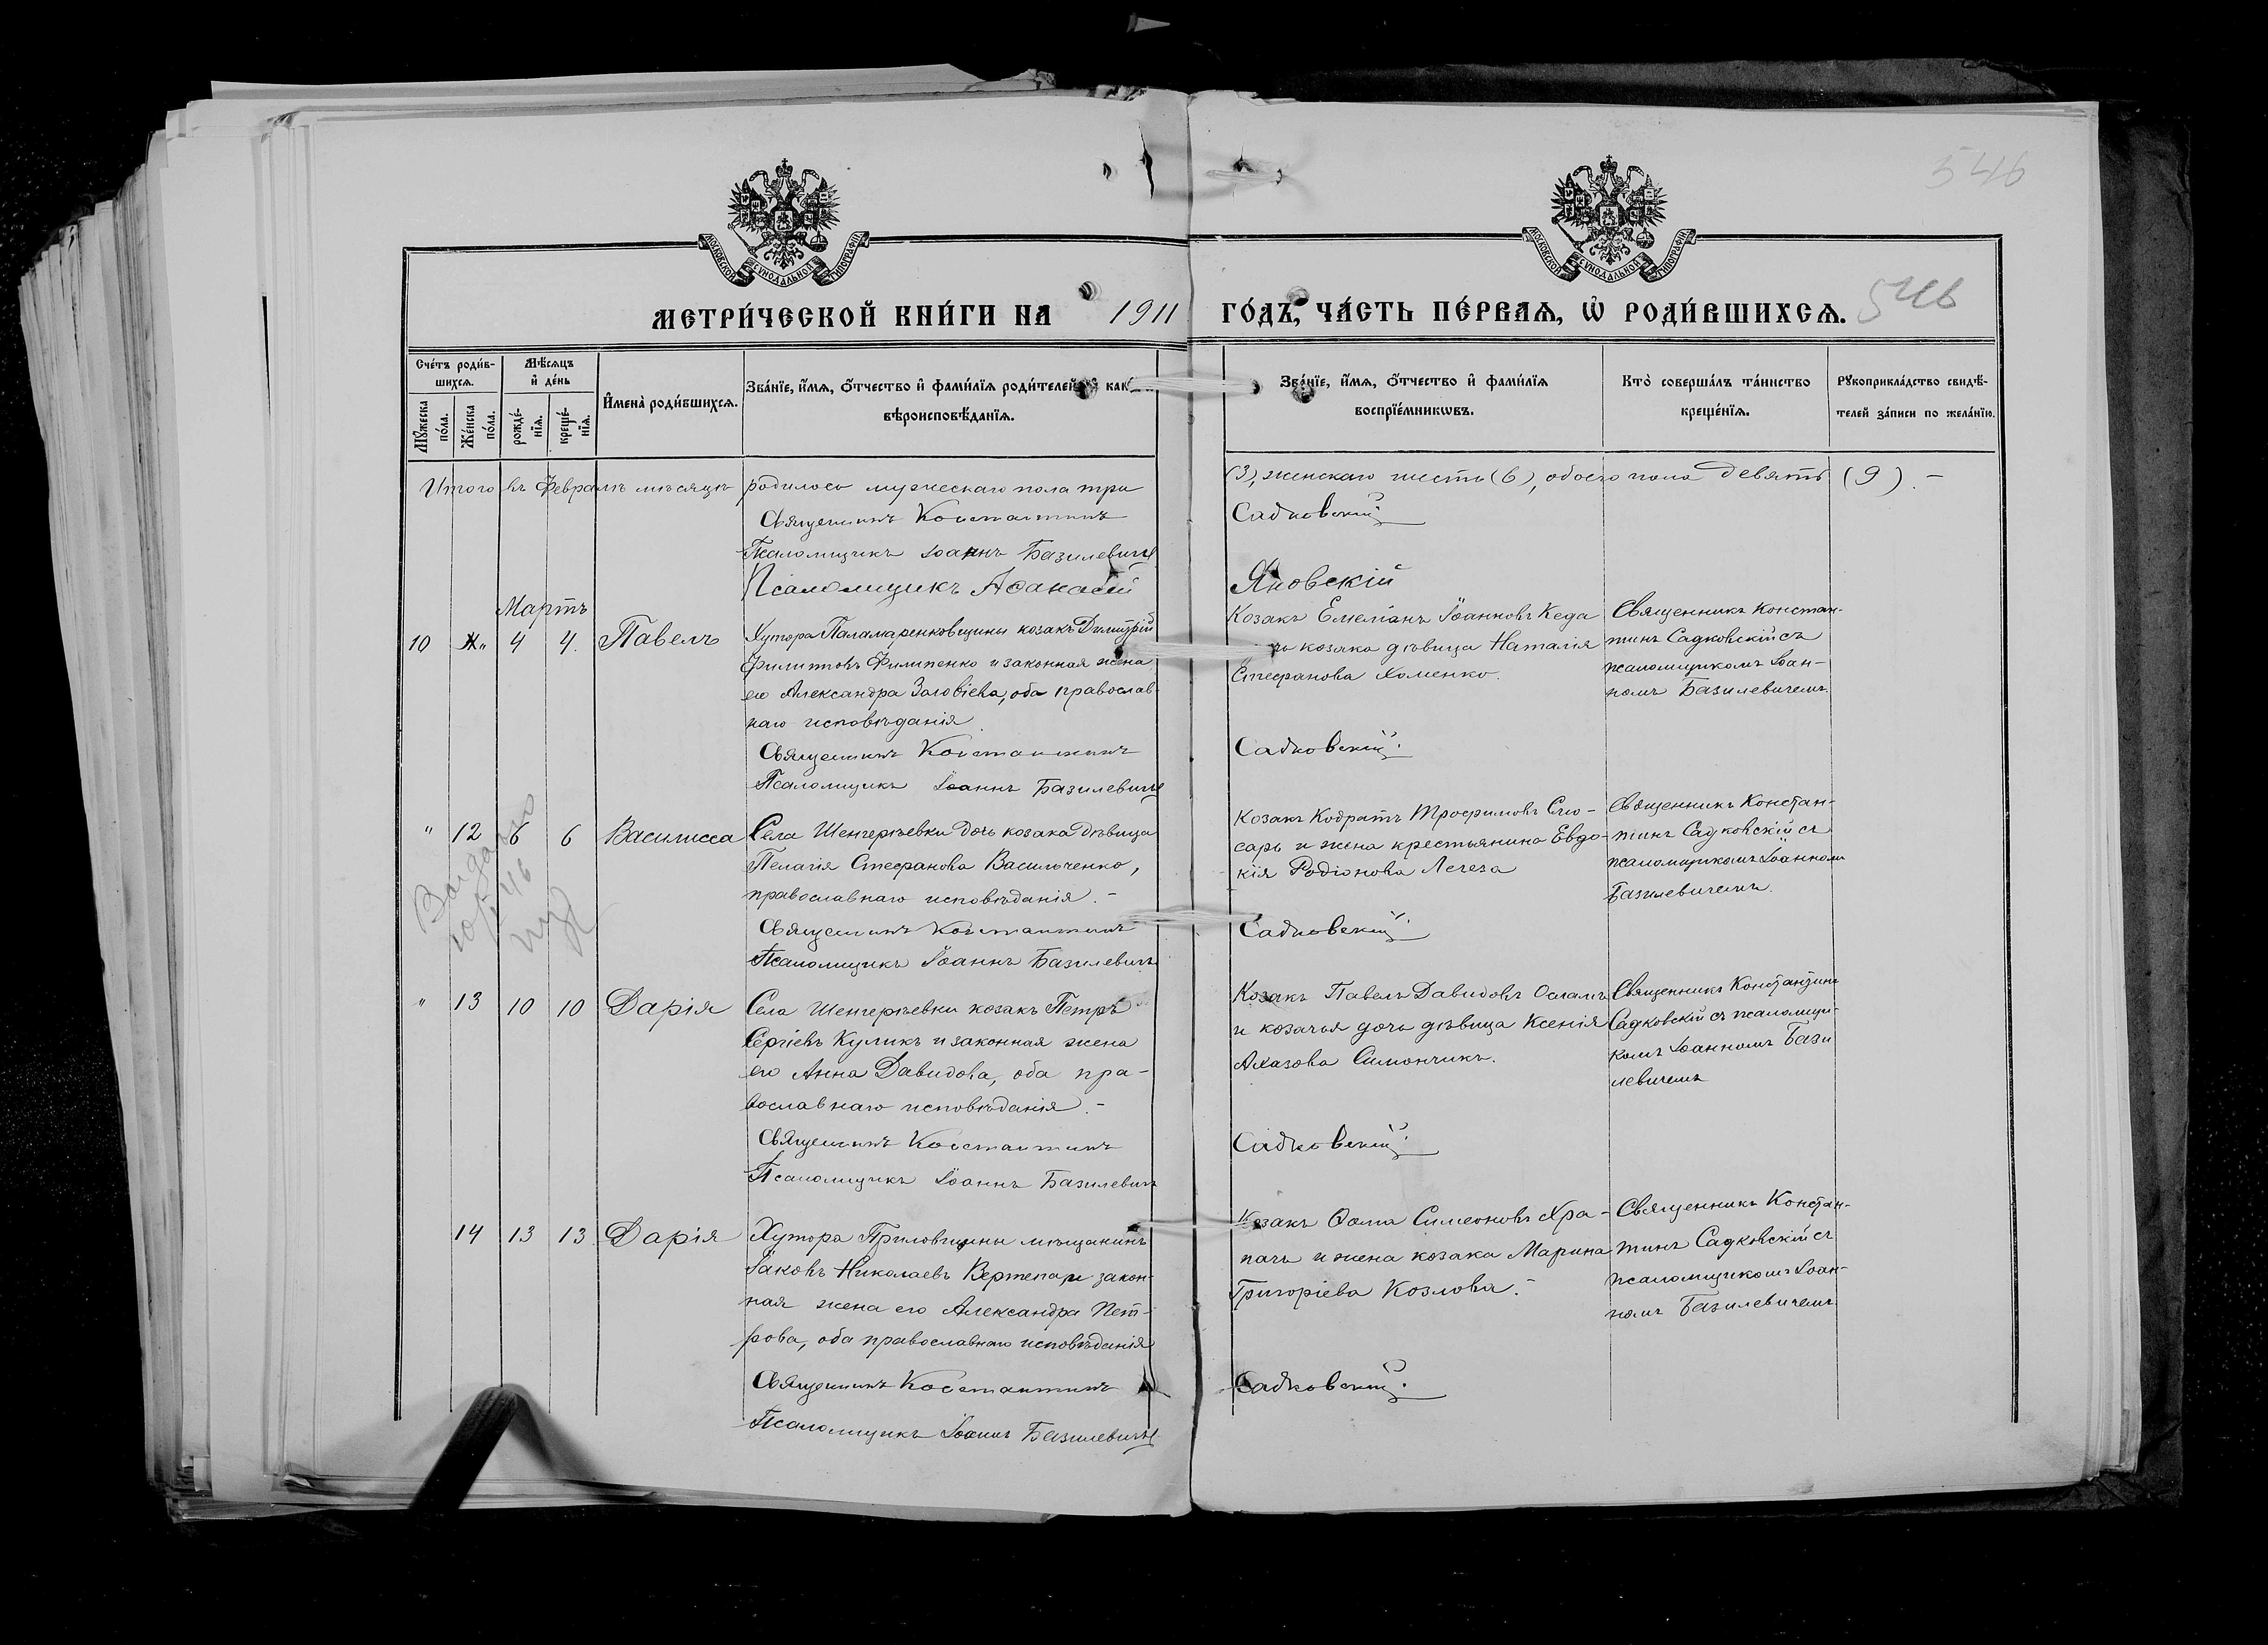 546
МОСКОВСКОЙ СѴНОДАЛЬНОЙ ТИПОГРАФІИ
МОСКОВСКОЙ СѴНОДАЛЬНОЙ ТИПОГРАФІИ
МЕТРИ́ЧЕСКОЙ КНИ́ГИ НА 1911 ГО́ДЪ, ЧА́СТЬ ПЕ́РВАѦ, Ѡ РОДИ́ВШИХСѦ. 546
Сче́тъ роди́в-
шихсѧ.
Мꙋ́жеска по́ла.
Же́нска по́ла.
Мѣ́сѧцъ
и де́нь
рожде́-
нїѧ.
креще́-
нїѧ.
Имена̀ роди́вшихсѧ.
Зва́нїе, и́мѧ, ѻ́тчество и фами́лїѧ роди́телей, и как
вѣроисповѣ́данїѧ.
Зва́нїе, и́мѧ, ѻ́тчество и фами́лїѧ
воспрїе́мникѡвъ.
Кто̀ соверша́лъ та́инство
креще́нїѧ.
Рꙋкоприкла́дство свидѣ́-
телей за́писи по жела́нїю.
Итого въ Февралѣ мѣсяцѣ родилось мужескаго пола три (3), женскаго шесть (6), обоего пола девять (9). –
Священникъ Константинъ Садковскій
Псаломщикъ Іоаннъ Базилевичъ
Псаломщикъ Аѳанасій Яновскій
Мартъ
10 4 4. Павелъ
Хутора Паламаренковщины козакъ Димитрій
Филиповъ Филипенко и законная жена
его Александра, оба православ-
наго исповѣданія
Козакъ Емеліанъ Іоанновъ Кеда
козака дѣвица Наталія
Стефанова Хоменко.
Священникъ Констан-
тинъ Садковскій съ
псаломщикомъ Іоан-
номъ Базилевичемъ.
Священникъ Константинъ Садковскій.
Псаломщикъ Іоаннъ Базилевичъ
" 12 6 6 Василисса
Села Шенгерѣевки дочь козака дѣвица
Пелагія Стефанова Васильченко,
православнаго исповѣданія. –
Козакъ Кодратъ Трофимовъ Слю-
сарь и жена крестьянина Евдо-
кія Родіонова Легеза
Священникъ Констан-
тинъ Садковскій съ
псаломщикомъ Іоанномъ
Базилевичемъ.
Священникъ Константинъ Садковскій.
Псаломщикъ Іоаннъ Базилевичъ
" 13 10 10 Дарія
Села Шенгерѣевки козакъ Петръ
Сергіевъ Куликъ и законная жена
его Анна Давидова, оба пра-
вославнаго исповѣданія. –
Козакъ Павелъ Давидовъ
и козачья дочь дѣвица Ксенія
Симончикъ.
Священникъ Константинъ
Садковскій съ псаломщи-
комъ Іоанномъ Бази
левичемъ
Священникъ Константинъ Садковскій.
Псаломщикъ Іоаннъ Базилевичъ
14 13 13 Дарія
Хутора Приловщины мѣщанинъ
Іаковъ Николаевъ Вертепа и закон-
ная жена его Александра Пет-
рова, оба православнаго исповѣданія
Козакъ Ѳома Симеоновъ Хра-
пачъ и жена козака Марина
Григоріева Козлова. –
Священникъ Констан-
тинъ Садковскій съ
псаломщикомъ Іоан-
номъ Базилевичемъ
Священникъ Константинъ Садковскій.
Псаломщикъ Іоаннъ Базилевичъ